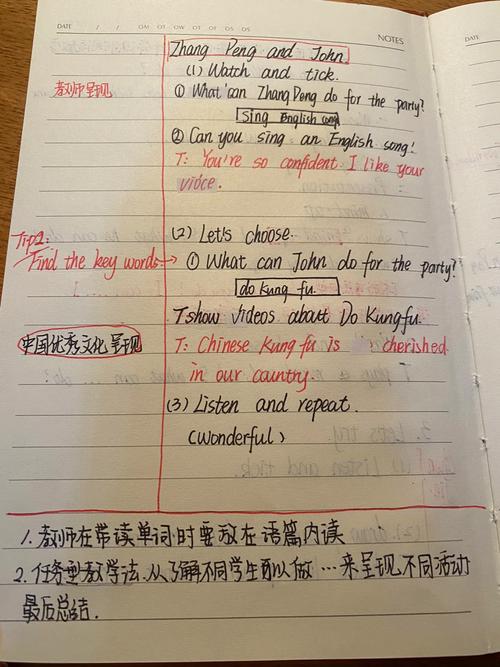 DATE / / MO TU WE TH FR SA SU
NOTES
DATE
Zhang Peng and John.
(1) Watch and tick.
教师呈现
① What can Zhang Peng do for the party?
sing English song
② Can you sing an English song!
T: You're so confident. I like your
vioce.
Tip2:
(2) Let's choose.
Find the key words→
① What can John do for the party?
do kung fu.
T show videos abait Do Kungfu.
中国优秀文化呈现
T: Chinese Kung fu is cherished
in our country.
(3) Listen and repeat.
(Wonderful)
1. 教师在带读单词时要放在语篇内读
2. 任务型教学法. 从了解不同学生可以做…来呈现不同活动
最后总结.